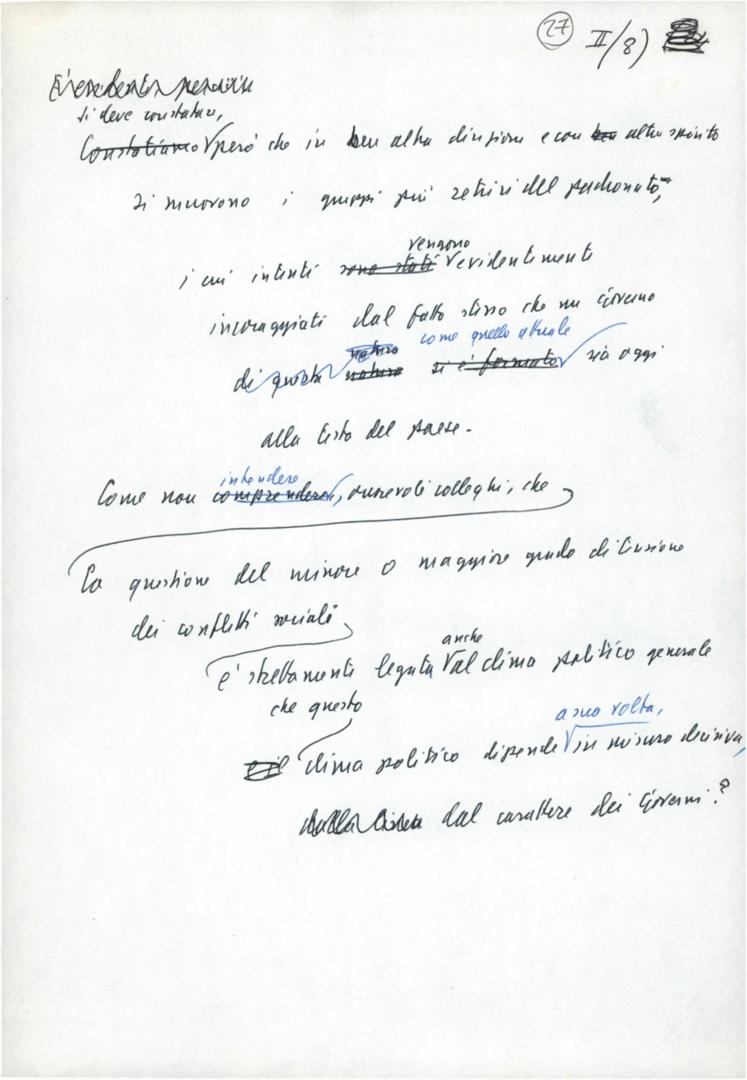 27 II/8)
È evidente perciò
si deve constatare,
Constatiamo però che in ben altra direzione e con ben altro spirito
si muovono i gruppi più retrivi del padronato,
vengono
i cui intenti sono stati evidentemente
incoraggiati dal fatto stesso che un Governo
natura come quello attuale
di questa natura si è formato sia oggi
alla testa del paese.
intendere
Come non comprendere, onorevoli colleghi, che
la questione del minore o maggiore grado di tensione
dei conflitti sociali
anche
è strettamente legata al clima politico generale
che questo
a sua volta,
e il clima politico dipende in misura decisiva,
dalla dal carattere dei Governi?